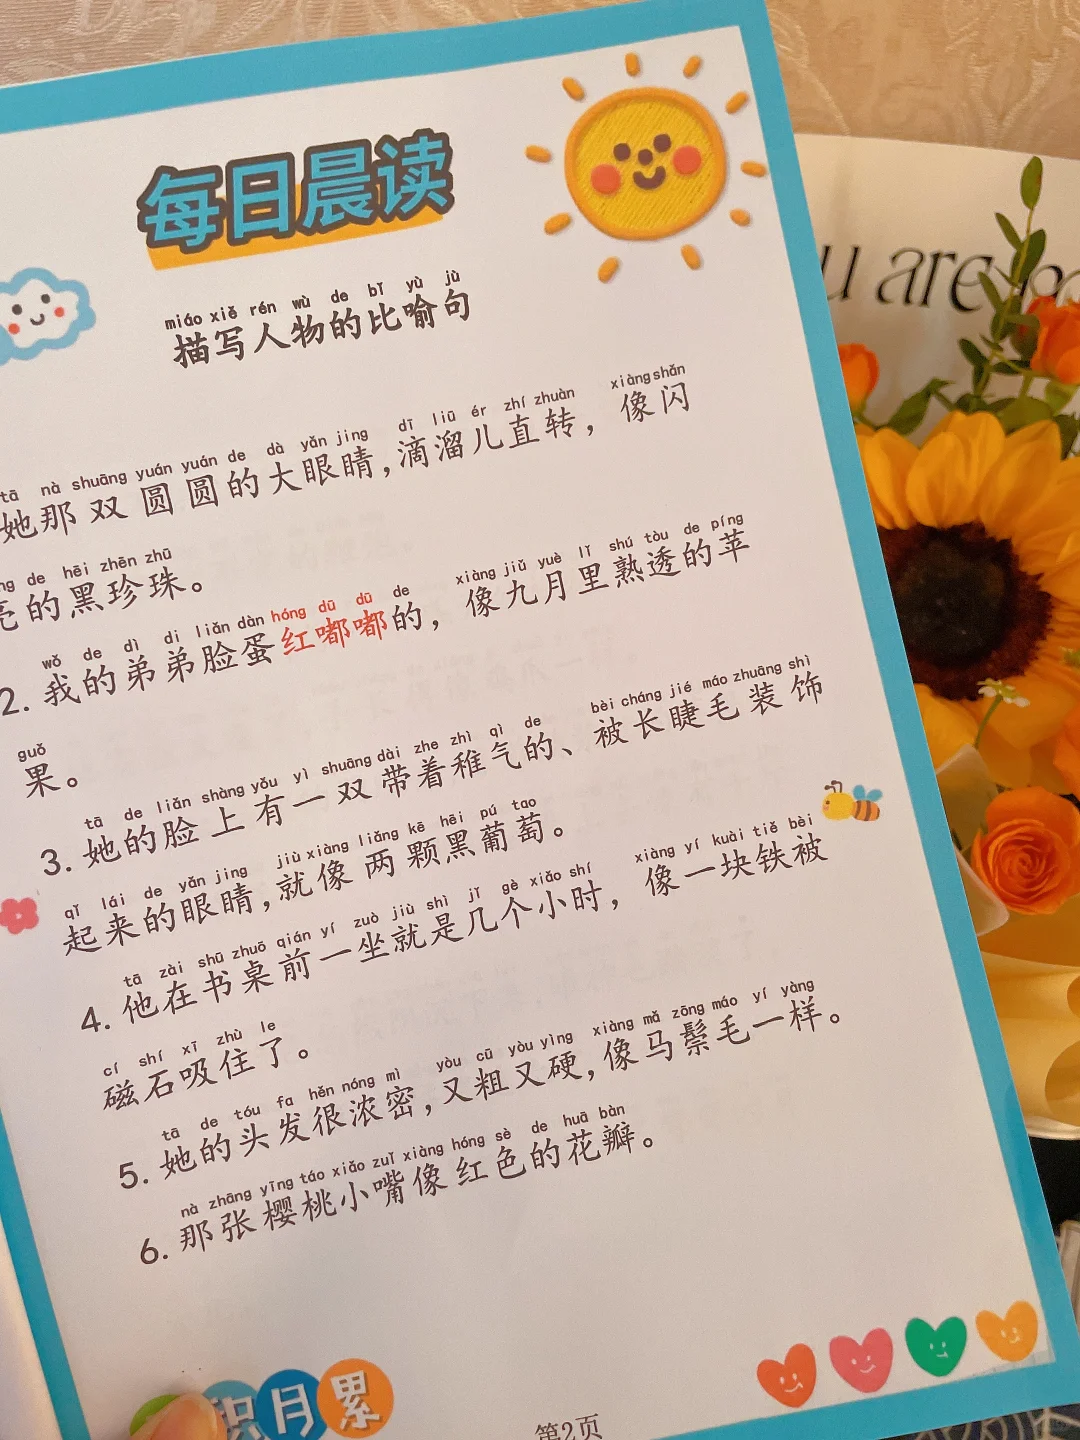 每日晨读
miáo xiě rén wù de bǐ yù jù
描写人物的比喻句
tā nà shuāng yuán yuán de dà yǎn jing dī liū ér zhí zhuàn xiàng shǎn
她那双圆圆的大眼睛,滴溜儿直转，像闪
de hēi zhēn zhū
亮的黑珍珠。
wǒ de dì di liǎn dàn hóng dū dū de xiàng jiǔ yuè lǐ shú tòu de píng
2. 我的弟弟脸蛋红嘟嘟的，像九月里熟透的苹
guǒ
果。
tā de liǎn shàng yǒu yì shuāng dài zhe zhì qì de bèi cháng jié máo zhuāng shì
3. 她的脸上有一双带着稚气的、被长睫毛装饰
qǐ lái de yǎn jing jiù xiàng liǎng kē hēi pú tao
起来的眼睛,就像两颗黑葡萄。
tā zài shū zhuō qián yí zuò jiù shì jǐ gè xiǎo shí xiàng yí kuài tiě bèi
4. 他在书桌前一坐就是几个小时，像一块铁被
cí shí xī zhù le
磁石吸住了。
tā de tóu fa hěn nóng mì yòu cū yòu yìng xiàng mǎ zōng máo yí yàng
5. 她的头发很浓密,又粗又硬,像马鬃毛一样。
nà zhāng yīng táo xiǎo zuǐ xiàng hóng sè de huā bàn
6. 那张樱桃小嘴像红色的花瓣。
积月累
第2页
are